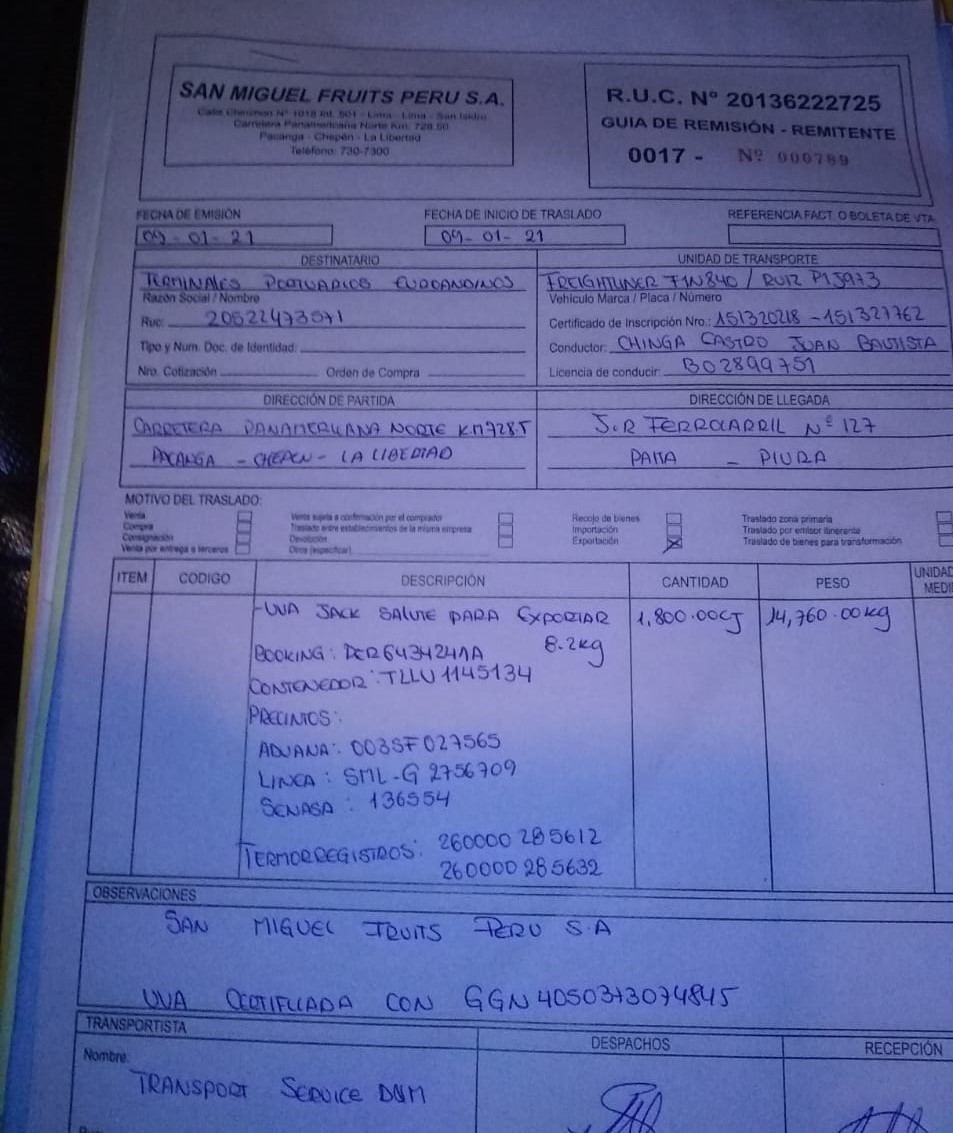 SAN MIGUEL FRUITS PERU S.A.
Calle Chinchon N° 1018 Int. 501 - Lima - Lima - San Isidro
Carretera Panamericana Norte Km. 728.50
Pacanga - Chepén - La Libertad
Teléfono: 730-7300
R.U.C. N° 20136222725
GUIA DE REMISIÓN - REMITENTE
0017 - Nº 000789
FECHA DE EMISIÓN
09-01-21
FECHA DE INICIO DE TRASLADO
09-01-21
REFERENCIA FACT. O BOLETA DE VTA.
DESTINATARIO
TERMINALES PORTUARIOS EUROANDINOS
Razón Social / Nombre
Ruc: 20522473571
Tipo y Num. Doc. de Identidad:
Nro. Cotización Orden de Compra
UNIDAD DE TRANSPORTE
FREIGHTLINER F1N840 / RUIZ P1J973
Vehículo Marca / Placa / Número
Certificado de Inscripción Nro.: 151320218 - 151327762
Conductor: CHINGA CASTRO JUAN BAUTISTA
Licencia de conducir: B02899751
DIRECCIÓN DE PARTIDA
CARRETERA PANAMERICANA NORTE KM728.5
PACANGA - CHEPEN - LA LIBERTAD
DIRECCIÓN DE LLEGADA
J.R FERROCARRIL Nº 127
PAITA - PIURA
MOTIVO DEL TRASLADO:
Venta
Compra
Consignación
Venta por entrega a terceros
Venta sujeta a confirmación por el comprador
Traslado entre establecimientos de la misma empresa
Devolución
Otros (especificar)
Recojo de bienes
Importación
Exportación
Traslado zona primaria
Traslado por emisor itinerante
Traslado de bienes para transformación
ITEM CODIGO DESCRIPCIÓN CANTIDAD PESO UNIDAD MEDI
-UVA JACK SALUTE PARA EXPORTAR 1,800.00CJ 14,760.00kg
8.2kg
BOOKING: DER6434241A
CONTENEDOR: TLLU 1145134
PRECINTOS:
ADUANA: 003SF027565
LINEA: SML-G 2756709
SENASA: 136554
TERMORREGISTROS: 260000 285612
260000 285632
OBSERVACIONES
SAN MIGUEL FRUITS PERU S.A
UVA CERTIFICADA CON GGN 4050373074845
TRANSPORTISTA
Nombre:
TRANSPORT SERVICE D&M
DESPACHOS
RECEPCIÓN